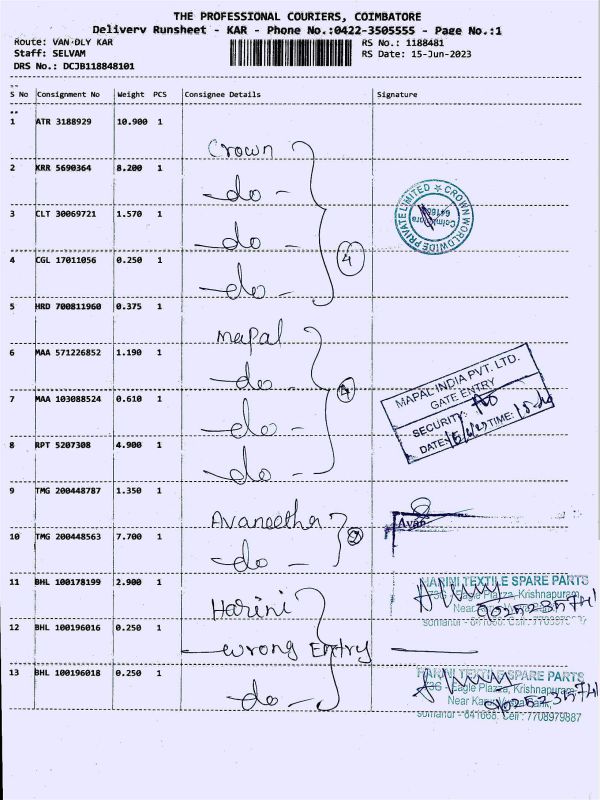 THE PROFESSIONAL COURIERS, COIMBATORE
Delivery Runsheet - KAR - Phone No.:0422-3505555 - Page No.:1
Route: VAN DLY KAR
RS No.: 1188481
Staff: SELVAM
RS Date: 15-Jun-2023
DRS No.: DCJB118848101
S No Consignment No Weight PCS Consignee Details Signature
1 ATR 3188929 10.900 1 Crown
2 KRR 5690364 8.200 1 -do-
3 CLT 30069721 1.570 1 -do-
4 CGL 17011056 0.250 1 -do-
4
CROWN WORLDWIDE PRIVATE LIMITED
5 HRD 700811960 0.375 1 Mapal
6 MAA 571226852 1.190 1 -do-
7 MAA 103088524 0.610 1 -do-
8 RPT 5207308 4.900 1 -do-
4
MAPAL INDIA PVT. LTD.
GATE ENTRY
SECURITY:
DATE: 15/6/23 TIME:
9 TMG 200448787 1.350 1 Avaneetha
10 TMG 200448563 7.700 1 -do-
2
11 BHL 100178199 2.900 1 Harini
HARINI TEXTILE SPARE PARTS
73G - Eagle Plazza, Krishnapuram,
12 BHL 100196016 0.250 1 -wrong Entry
13 BHL 100196018 0.250 1 -do-
HARINI TEXTILE SPARE PARTS
73G - Eagle Plazza, Krishnapuram,
Somanur - 641668. Cell: 7708979887